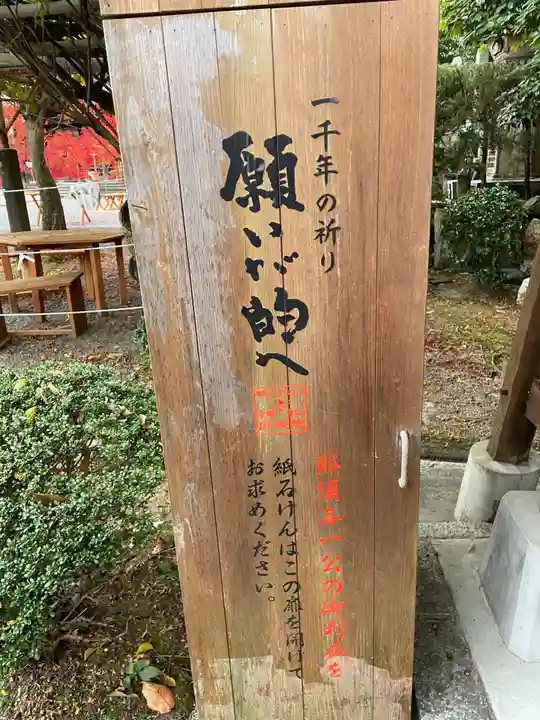 一千年の祈り
願いが的へ
那須与一公の御利益を
紙石けんはこの扉を開けて
お求めください。